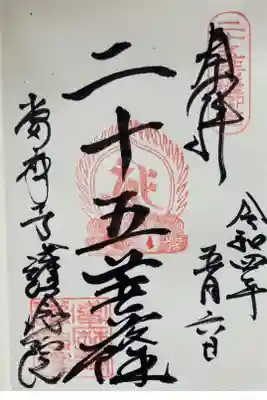 奉拝
令和四年
五月六日
二十五菩薩
當麻寺護念院